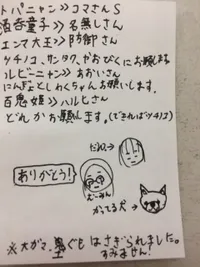 トパニャン>>コマさんS
酒呑童子>>名無しさん
エンマ大王>>防御さん
ツチノコ、サンタク、やおびくにお願します。
ルビーニャン>>あおいさん
にんぎょとしわくちゃんお願いします。
百鬼姫>>ハルヒさん
どれかお願します。(できればツチノコ)
だれ??
ありがとう!
むーみん
かってる犬→
※大ガマ、土ぐもはさぎられました。
すみません!